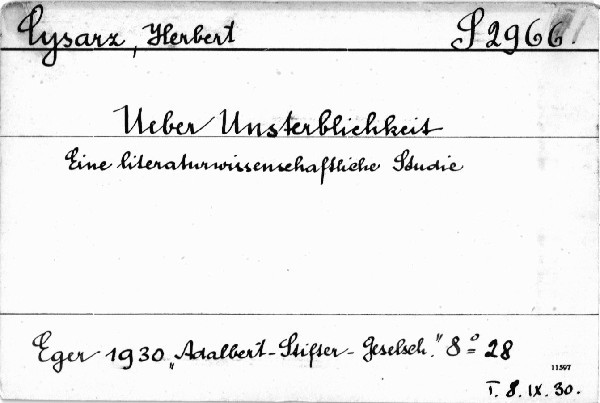 Cysarz, Herbert S 2966.
Ueber Unsterblichkeit
Eine literaturwissenschaftliche Studie
Eger 1930 „Adalbert-Stifter-Geselsch." 8° 28
11597
T. 8. IX. 30.